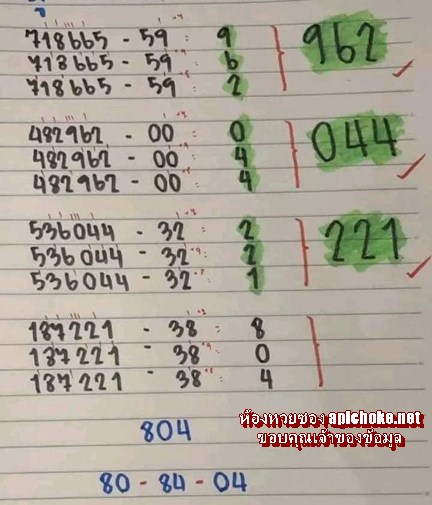 718665 - 59 : 9
718665 - 59 : 6
718665 - 59 : 2
962
482962 - 00 : 0
482962 - 00 : 4
482962 - 00 : 4
044
536044 - 32 : 2
536044 - 32 : 2
536044 - 32 : 1
221
187221 - 38 : 8
187221 - 38 : 0
187221 - 38 : 4
804
ห้องหวยซอง apichoke.net
ขอบคุณเจ้าของข้อมูล
80 - 84 - 04